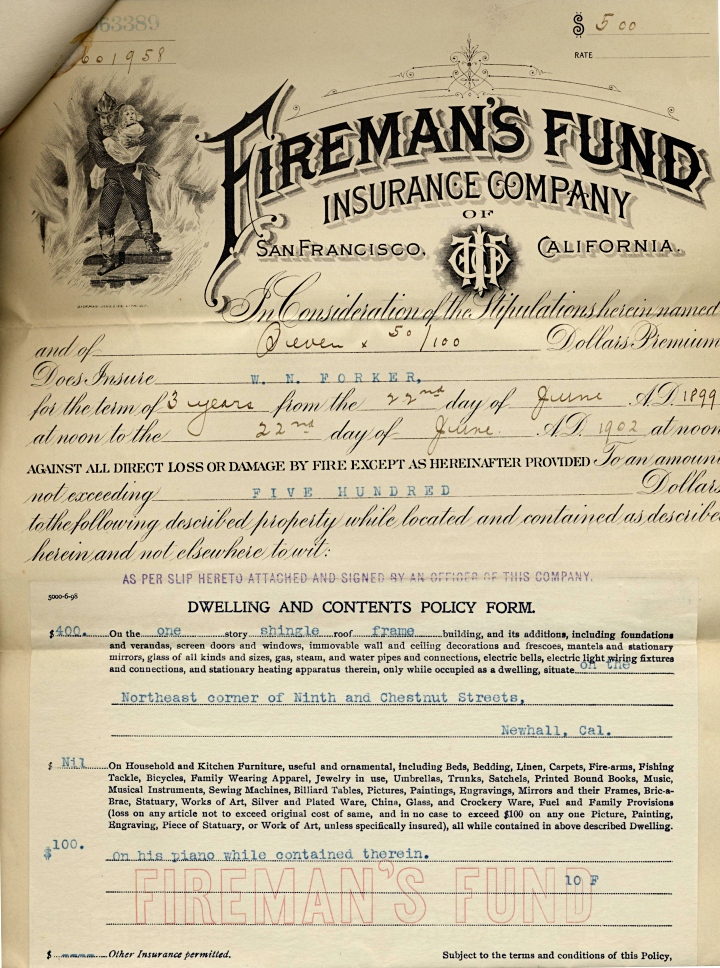 63389
$ 5 00
601958
RATE
FIREMAN'S FUND
INSURANCE COMPANY
OF
SAN FRANCISCO, CALIFORNIA.
In Consideration of the Stipulations herein named
and of Seven x 50/100 Dollars Premium
Does Insure W. N. FORKER,
for the term of 3 years from the 22nd day of June A.D. 1899
at noon to the 22nd day of June. A.D. 1902 at noon
AGAINST ALL DIRECT LOSS OR DAMAGE BY FIRE EXCEPT AS HEREINAFTER PROVIDED To an amount
not exceeding FIVE HUNDRED Dollars
to the following described property while located and contained as described
herein and not elsewhere to wit:
AS PER SLIP HERETO ATTACHED AND SIGNED BY AN OFFICER OF THIS COMPANY.
5000-6-98
DWELLING AND CONTENTS POLICY FORM.
$400. On the one story shingle roof frame building, and its additions, including foundations
and verandas, screen doors and windows, immovable wall and ceiling decorations and frescoes, mantels and stationary
mirrors, glass of all kinds and sizes, gas, steam, and water pipes and connections, electric bells, electric light wiring fixtures
and connections, and stationary heating apparatus therein, only while occupied as a dwelling, situate on the
Northeast corner of Ninth and Chestnut Streets,
Newhall, Cal.
$ Nil On Household and Kitchen Furniture, useful and ornamental, including Beds, Bedding, Linen, Carpets, Fire-arms, Fishing
Tackle, Bicycles, Family Wearing Apparel, Jewelry in use, Umbrellas, Trunks, Satchels, Printed Bound Books, Music,
Musical Instruments, Sewing Machines, Billiard Tables, Pictures, Paintings, Engravings, Mirrors and their Frames, Bric-a-
Brac, Statuary, Works of Art, Silver and Plated Ware, China, Glass, and Crockery Ware, Fuel and Family Provisions
(loss on any article not to exceed original cost of same, and in no case to exceed $100 on any one Picture, Painting,
Engraving, Piece of Statuary, or Work of Art, unless specifically insured), all while contained in above described Dwelling.
$100. On his piano while contained therein.
10 F
FIREMAN'S FUND
$ Other Insurance permitted. Subject to the terms and conditions of this Policy,